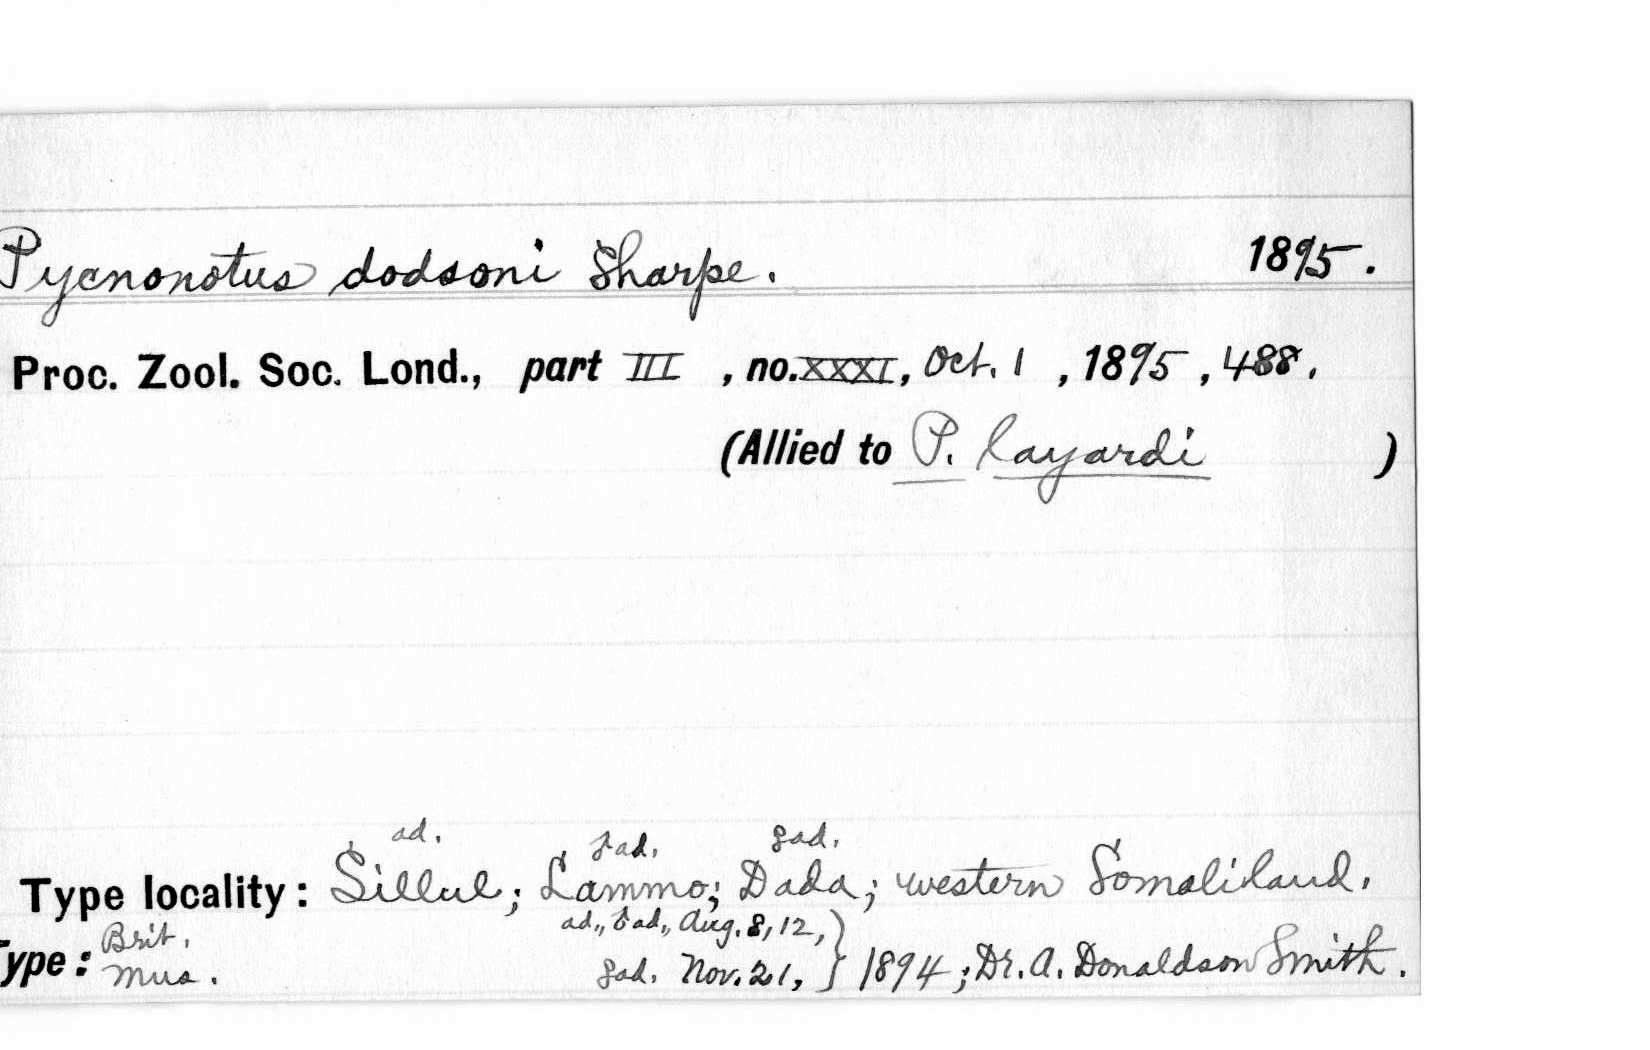 Pycnonotus dodsoni Sharpe. 1895.
Proc. Zool. Soc. Lond., part III , no. XXXI, Oct. 1 , 1895 , 488.
(Allied to P. layardi )
ad. ad. ad.
Type locality: Sillul; Lammo; Dada; western Somaliland.
Type: Brit. Mus.
ad., ad., Aug. 8, 12, }
ad. Nov. 21, } 1894; Dr. A. Donaldson Smith.